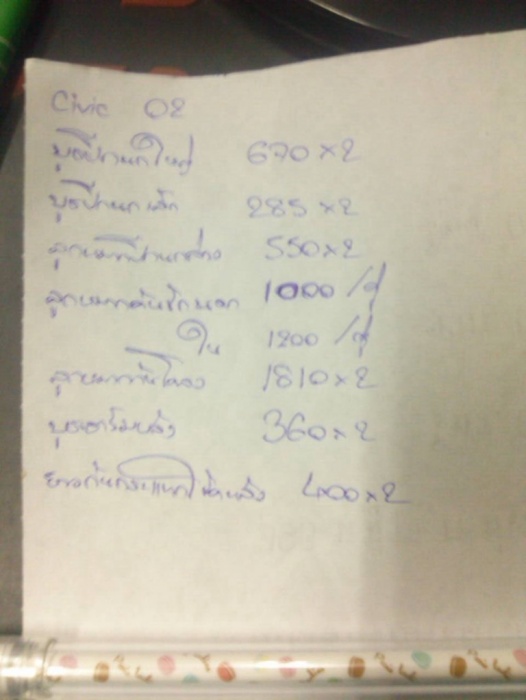 Civic 02
บูชปีกนกใหญ่ 670 x 2
บูชปีกนกเล็ก 285 x 2
ลูกหมากปีกนกล่าง 550 x 2
ลูกหมากคันชักนอก 1000 /คู่
ใน 1200 /คู่
ลูกหมากกันโคลง 1810 x 2
360 x 2
ยางกันกระแทกโช้คหลัง 400 x 2